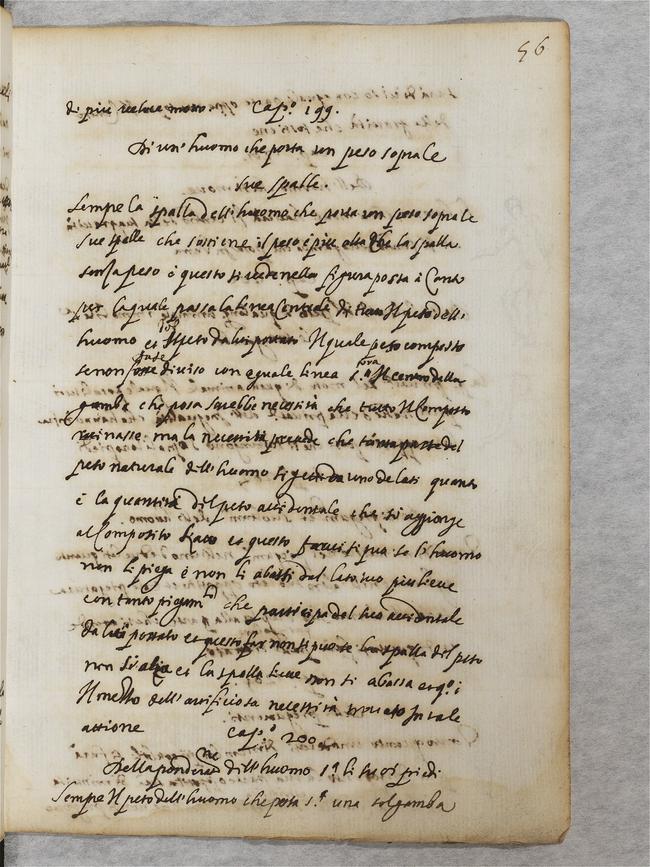 56
di piu veloce moto. Cap.º 199.
Di un' huomo che porta un peso sopra le
sue spalle.
Sempe la spalla dell'huomo che porta un peso sopra le
sue spalle che sostiene il peso è piu alta che la spalla
senza peso è questo si vede nella figura posta à Canto
per la quale passa la linea Centrale di tutto Il peso dell'
huomo et Il peso da lui portato Il quale peso composto
se non fuse diviso con eguale linea sora Il centro della
gamba che posa sarebbe necessità che tutto Il Composto
ruinasse ma la necessità provede che tanta parte del
peso naturale dell'huomo si getti da uno de lati quanto
è la quantità del peso accidentale che si aggionge
al Composito et questo far si può se l'huomo
non si piega è non si abassi dal lato suo piu lieve
con tanto piegamto che participa del peso accidentale
da lui portato et questo far non si puo se la spalla del peso
non si alza et la spalla lieve non si abassa et q.º è
Il mezzo dell'artificiosa necessità trovato In tale
attione
Cap.º 200
Della ponderatne dell'huomo s.ª li suoi piedi
Sempre Il peso dell'huomo che posa s.ª una sol gamba